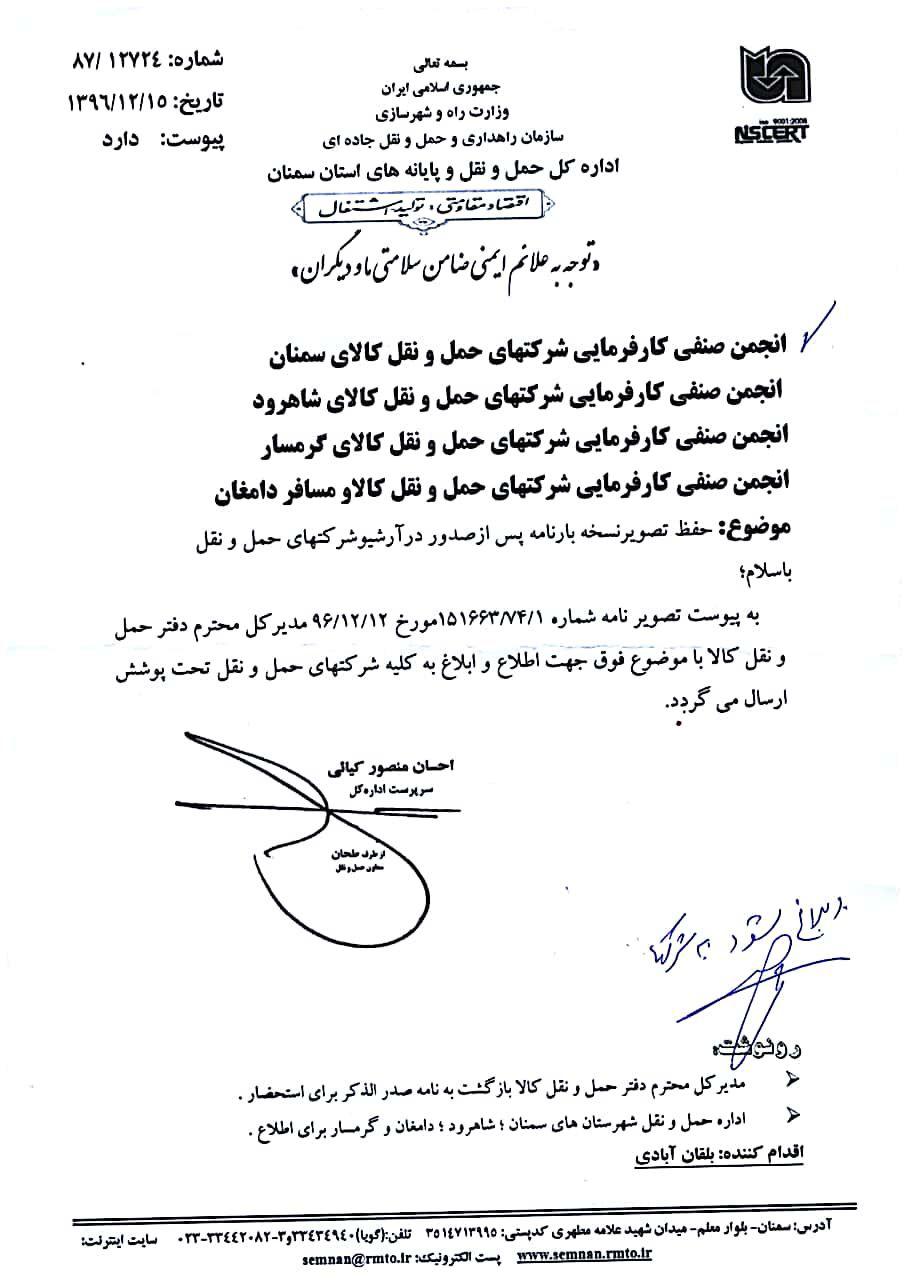 شماره: ۸۷/ ۱۲۷۲٤
تاریخ: ۱۳۹٦/۱۲/۱٥
پیوست: دارد
بسمه تعالی
جمهوری اسلامی ایران
وزارت راه و شهرسازی
سازمان راهداری و حمل و نقل جاده ای
اداره کل حمل و نقل و پایانه های استان سمنان
iso 9001:2008
NSCERT
اقتصاد مقاومتی، تولید، اشتغال
«توجه به علائم ایمنی ضامن سلامتی ما و دیگران»
انجمن صنفی کارفرمایی شرکتهای حمل و نقل کالای سمنان
انجمن صنفی کارفرمایی شرکتهای حمل و نقل کالای شاهرود
انجمن صنفی کارفرمایی شرکتهای حمل و نقل کالای گرمسار
انجمن صنفی کارفرمایی شرکتهای حمل و نقل کالاو مسافر دامغان
موضوع: حفظ تصویرنسخه بارنامه پس ازصدور درآرشیوشرکتهای حمل و نقل
باسلام؛
به پیوست تصویر نامه شماره ۱۵۱۶۶۳/۷۴/۱مورخ ۹۶/۱۲/۱۲ مدیرکل محترم دفتر حمل
و نقل کالا با موضوع فوق جهت اطلاع و ابلاغ به کلیه شرکتهای حمل و نقل تحت پوشش
ارسال می گردد.
احسان منصور کیائی
سرپرست اداره کل
از طرف طحان
معاون حمل و نقل
شود به شرکتها
رونوشت:
مدیرکل محترم دفتر حمل و نقل کالا بازگشت به نامه صدر الذکر برای استحضار .
اداره حمل و نقل شهرستان های سمنان ؛ شاهرود ؛ دامغان و گرمسار برای اطلاع .
اقدام کننده: بلقان آبادی
آدرس: سمنان- بلوار معلم- میدان شهید علامه مطهری کدپستی: ۳۵۱۴۷۱۳۹۹۵ تلفن:(گویا)۳۳۴۳۴۹۴۰و۳-۳۳۴۴۲۰۸۲-۰۲۳ سایت اینترنت:
www.semnan.rmto.ir پست الکترونیک: semnan@rmto.ir